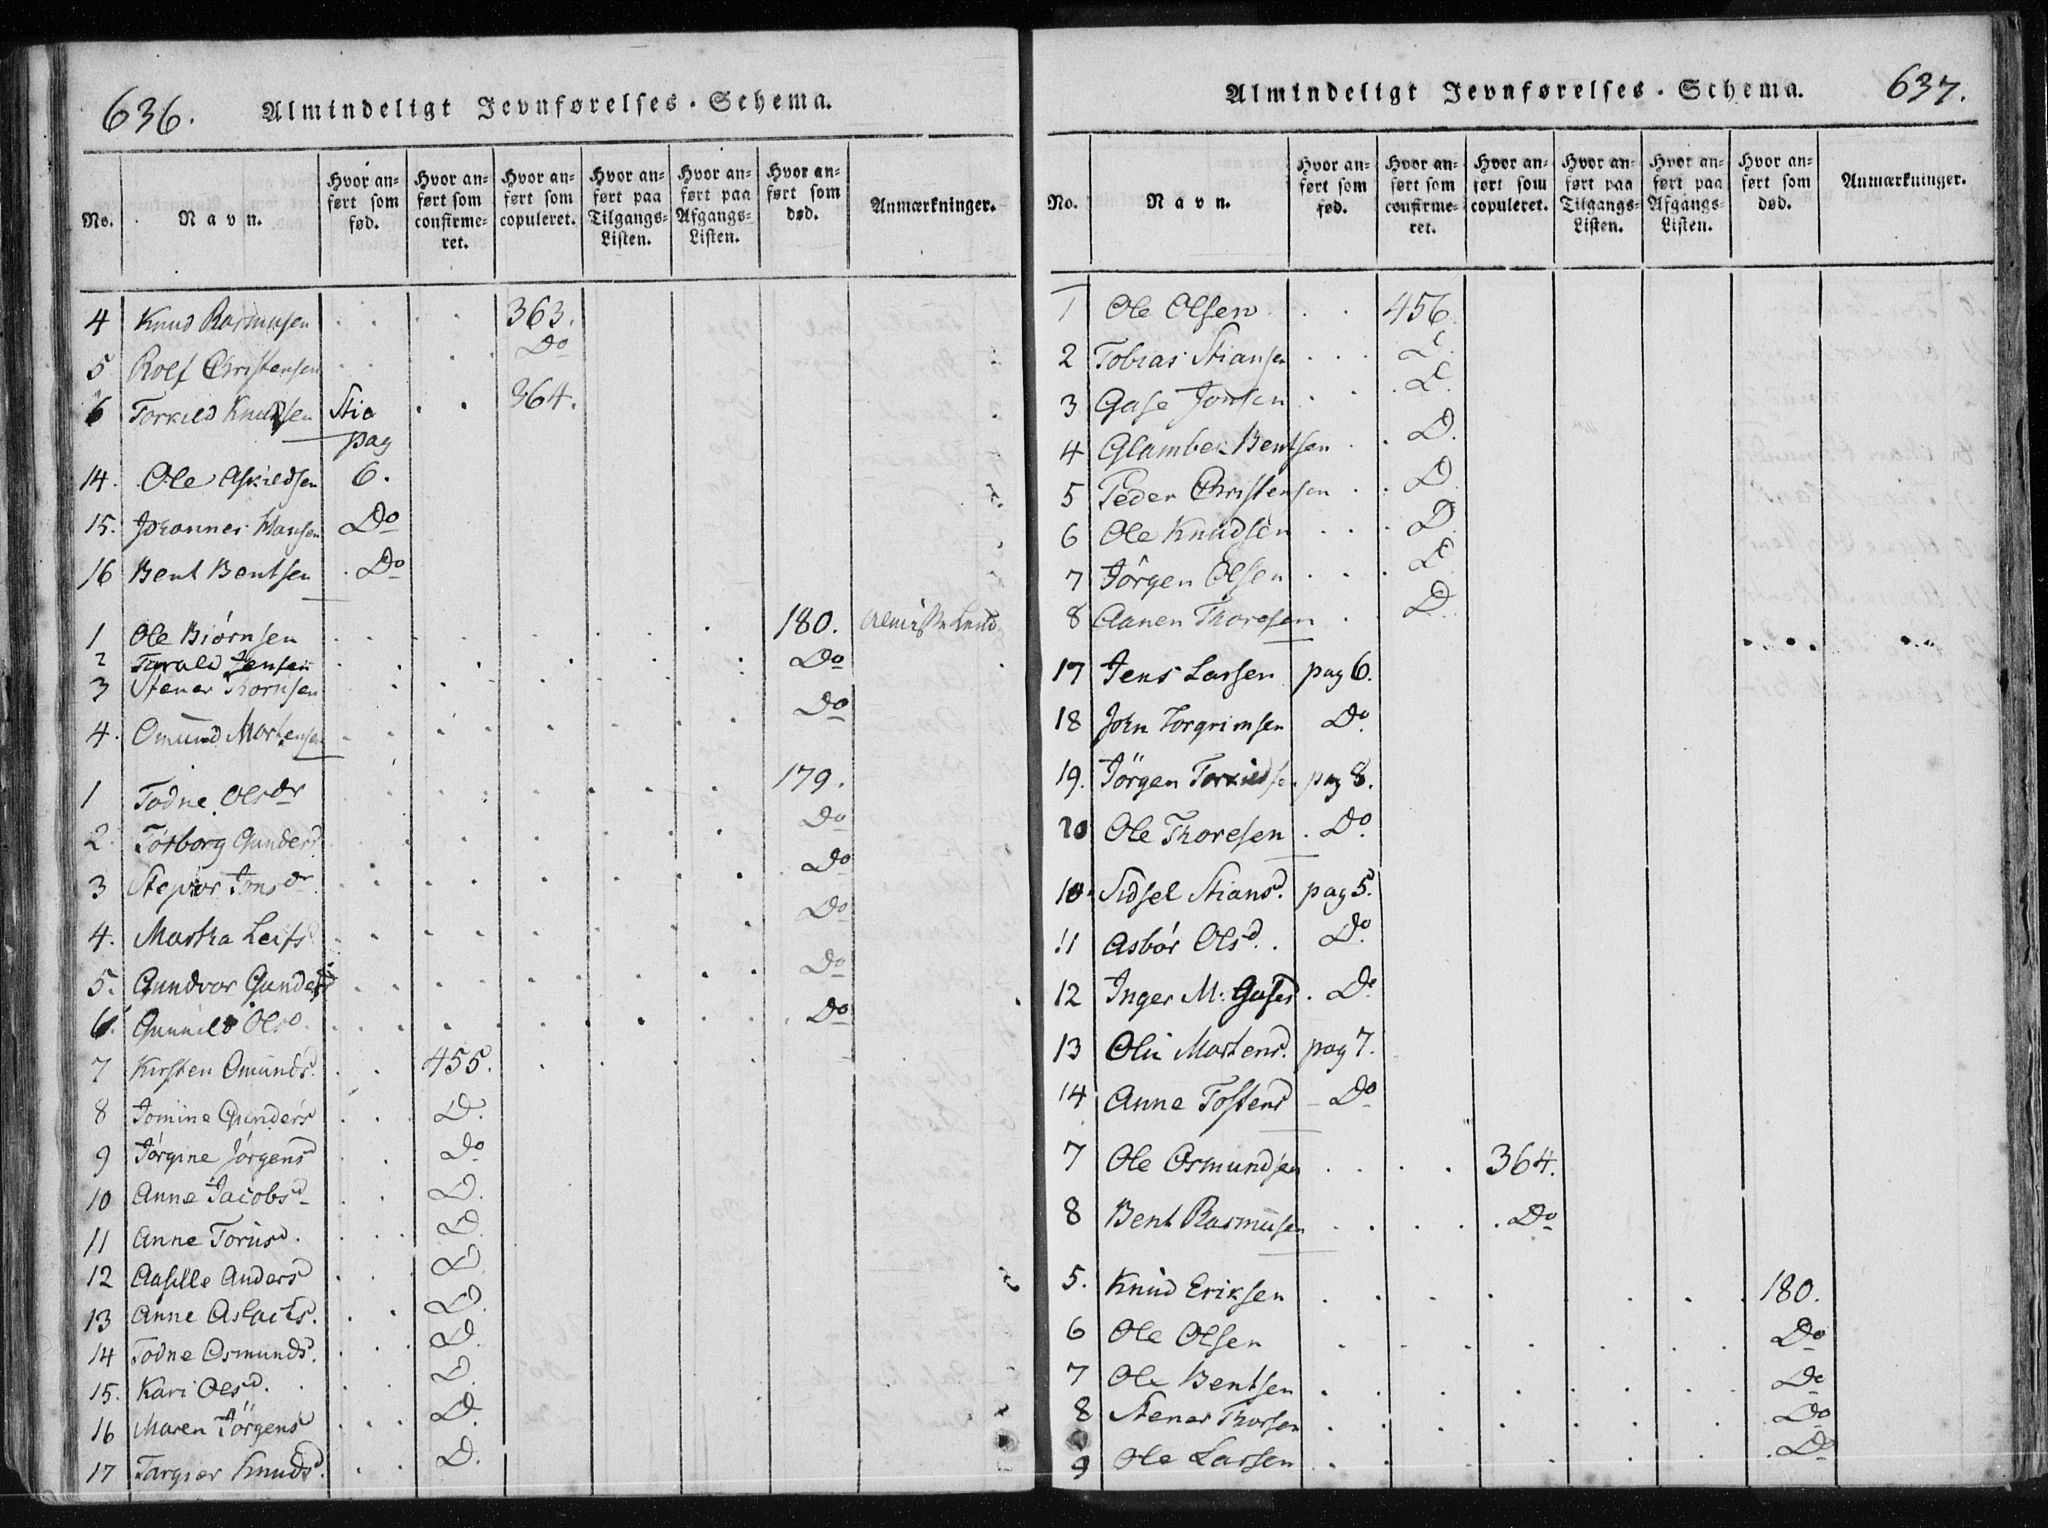 636.
Almindeligt Jevnførelses-Schema.
No.
Navn.
Hvor anført som fød.
Hvor anført som confirmeret.
Hvor anført som copuleret.
Hvor anført paa Tilgangs-Listen.
Hvor anført paa Afgangs-Listen.
Hvor anført som død.
Anmærkninger.
4 Knud Rasmusen . . . . 363.
5 Rolf Christensen . . . . Do
6 Torkild Knudsen Stia . . 364.
pag
14. Ole Askildsen 6.
15. Johannes Hansen Do
16 Bent Bentsen . Do
1 Ole Biørnsen 180.
2 Tarald Jensen Do
3 Stener Thornsen
4. Omund Mortensen Do
1 Todne Olsdr 179.
2. Torborg Gundersd Do
3 Jonsdr Do
4. Martha Leifsd Do
5. Gundvor Gundersd Do
6. Gunnild Olsd. Do
7 Kirsten Omunds. 455.
8 Jomine Gunders D.
9 Jørgine Jørgensd Do
10 Anne Jacobsd D.
11 Anne Torusd. D.
12 Aasille Anders D
13 Anne Aslachs. D.
14 Todne Osmunds. D.
15. Kari Olsd. D.
16 Maren Jörgens D.
17 Targier Knuds. D.
637.
Almindeligt Jevnførelses-Schema.
No.
Navn.
Hvor anført som fød.
Hvor anført som confirmeret.
Hvor anført som copuleret.
Hvor anført paa Tilgangs-Listen.
Hvor anført paa Afgangs-Listen.
Hvor anført som død.
Anmærkninger.
1 Ole Olsen . . 456.
2 Tobias Stiansen . . . D.
3 Gase Jonsen . . . D.
4 Glambek Bentsen . . D.
5 Peder Christensen . . D
6 Ole Knudsen . . . D.
7 Jörgen Olsen . . . D
8 Aanen Thoresen . . D.
17 Jens Larsen pag 6.
18 John Torgrimsen Do
19. Jörgen Torkildsen pag 8.
20 Ole Thoresen . Do
10. Sidsel Stiansd. pag 5.
11 Asbør Olsd. . Do.
12 Inger M. Gasesd . Do
13 Oli Martensd. pag 7.
14 Anne Tostensd Do
7 Ole Osmundsen . . . . 364.
8 Bent Rasmusen . . . . Do
5. Knud Eriksen 180.
6 Ole Olsen Do
7 Ole Bentsen Do
8 Stener Thorsen Do
9 Ole Larsen Do